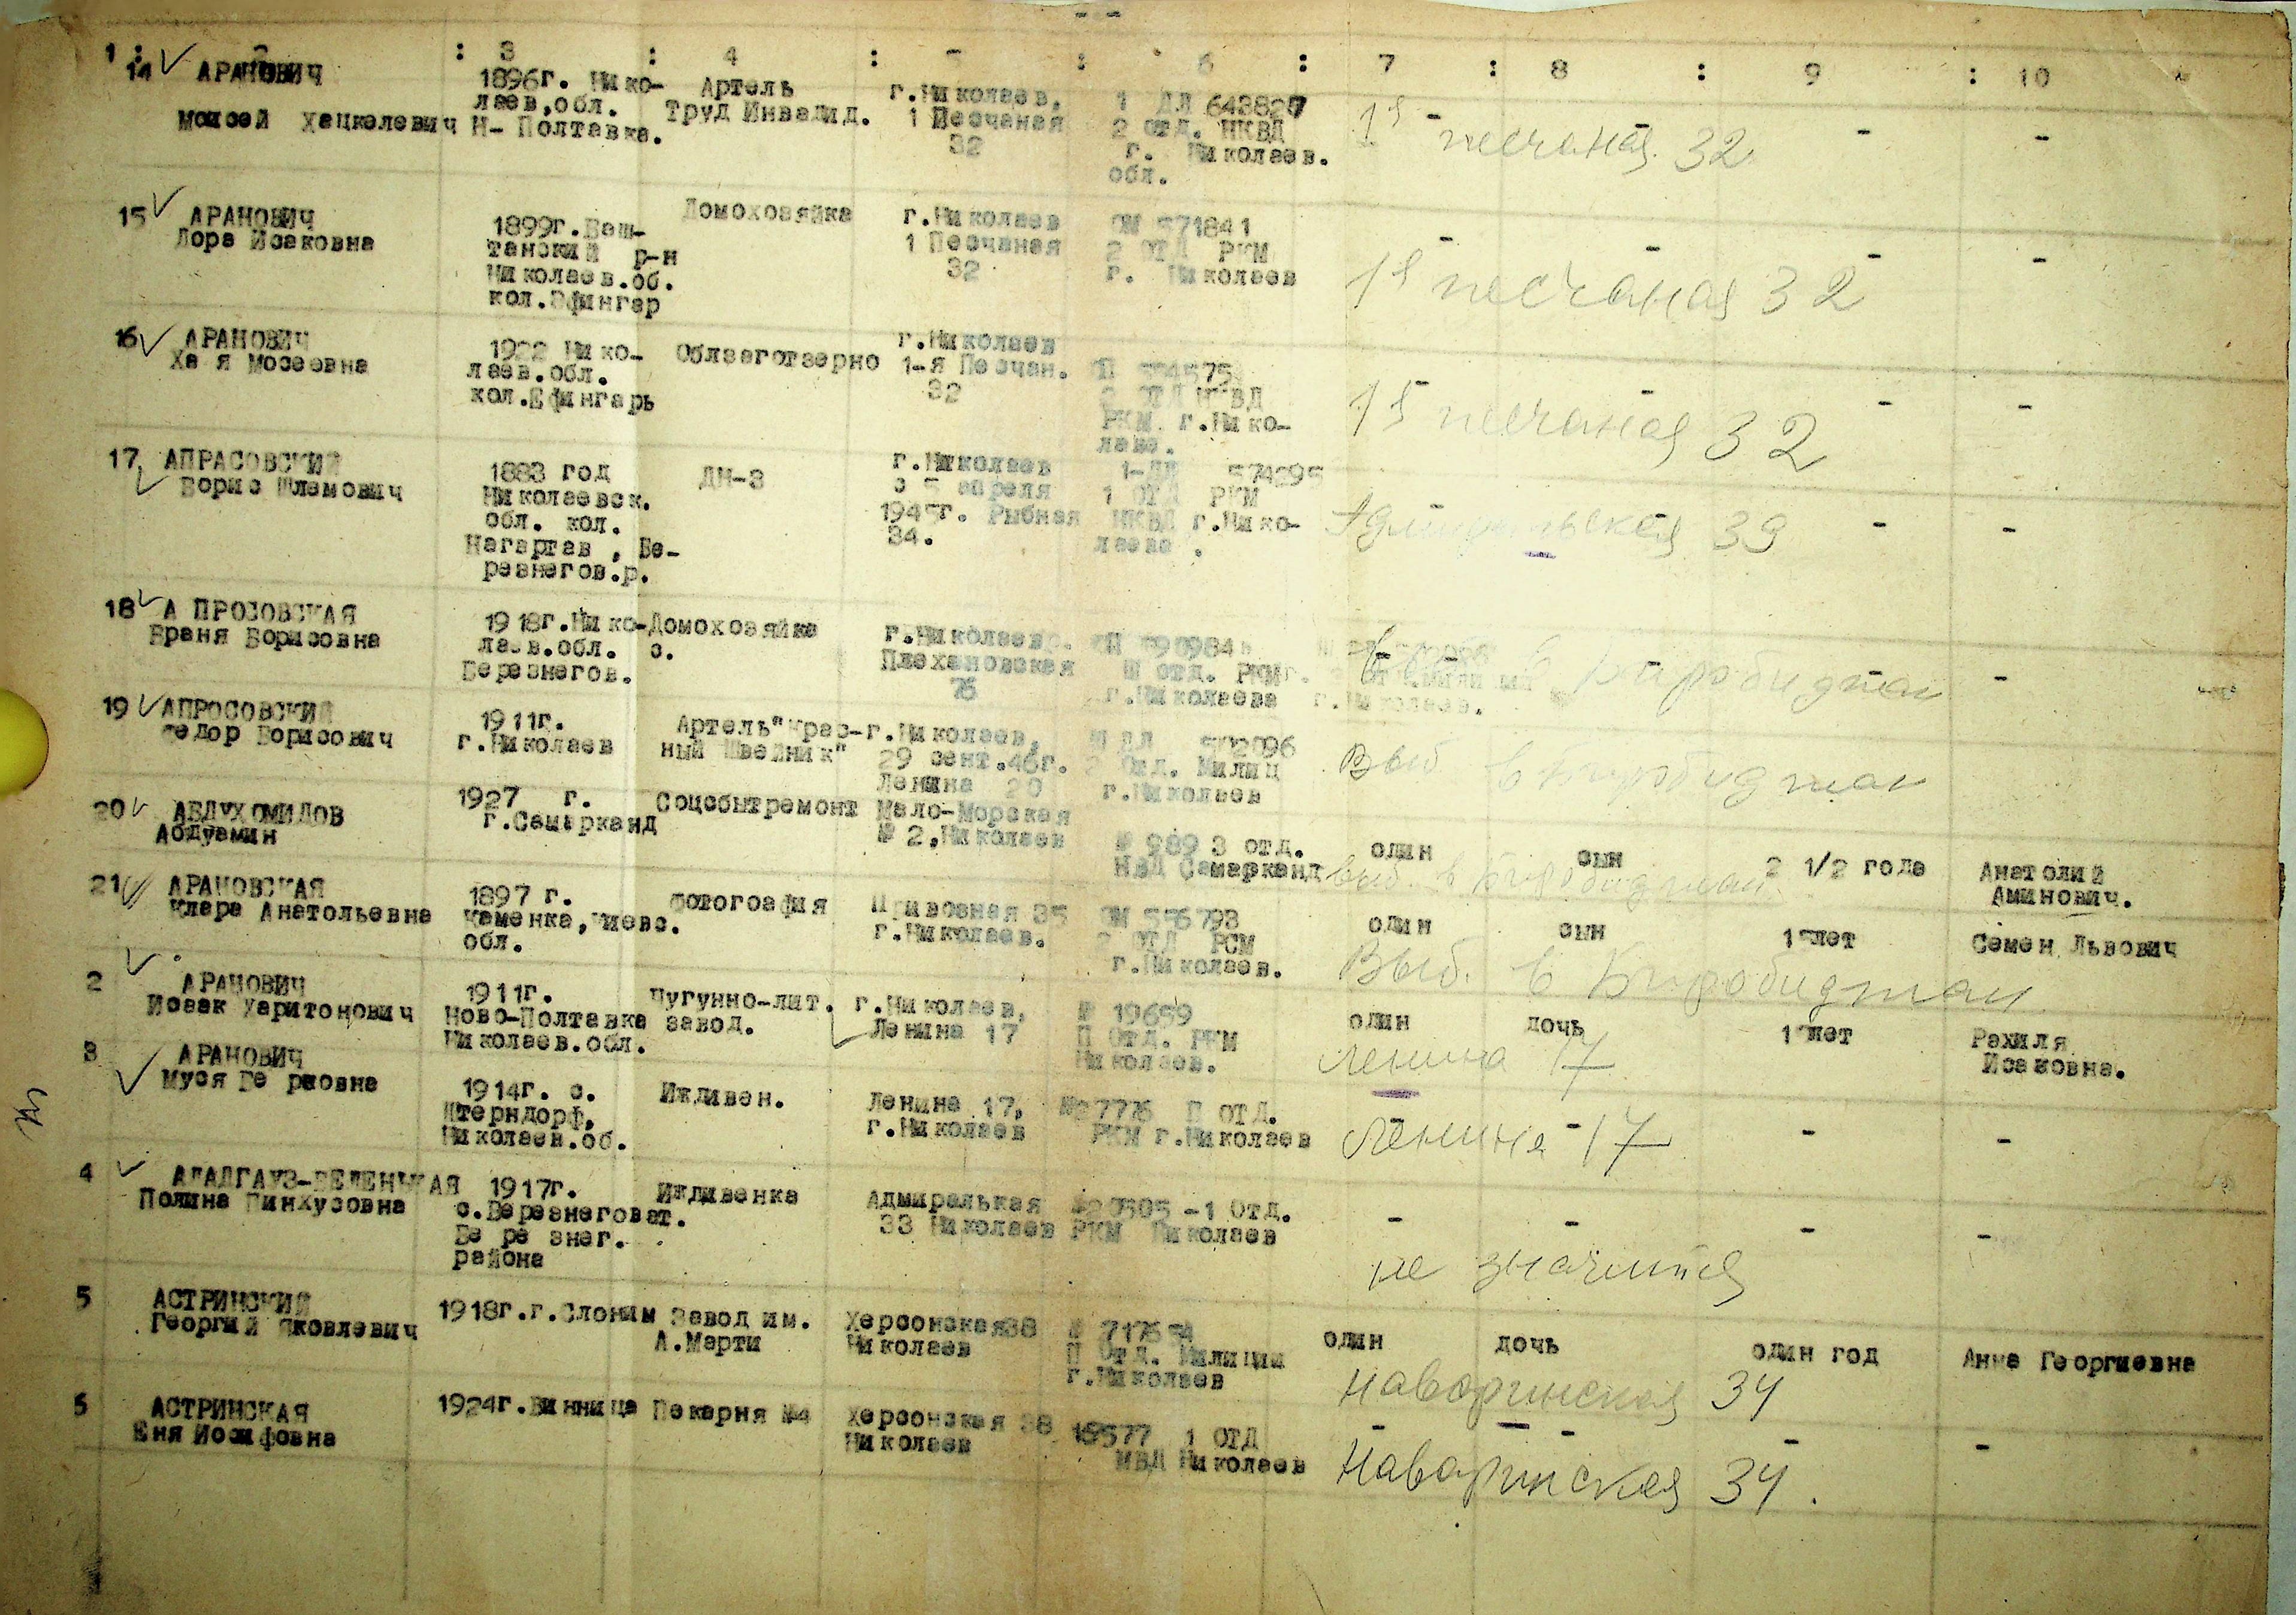 1 : 2 : 3 : 4 : - : 6 : 7 : 8 : 9 : 10
14 АРАНОВИЧ
Моисей Хацкелевич
1896г. Нико-
лаев,обл.
Н- Полтавка.
Артель
Труд Инвалид.
г.Николаев,
1 Песчаная
32
1 ДЛ 643827
2 отд. НКВД
г. Николаев.
обл.
- - - -
1я песчаная 32
15 АРАНОВИЧ
Лора Исаковна
1899г.Баш-
танский р-н
Николаев.об.
кол.Эфингар
Домохозяйка
г.Николаев
1 Песчаная
32
571841
2 ОТД РКМ
г. Николаев
- - - -
1я песчаная 32
16 АРАНОВИЧ
Ха я Мосеевна
1922 Нико-
лаев.обл.
кол.Ефингарь
Облзаготзерно
г.Николаев
1-я Песчан.
32
РКМ. г.Нико-
лаев.
- - -
1я песчаная 32
17 АПРАСОВСКИЙ
Борис Шлемович
1883 год
Николаевск.
обл. кол.
Нагартав , Бе-
резнегов.р.
ДН-3
г.Николаев
с 5 апреля
1945г. Рыбная
34.
574295
1 ОТД РКМ
НКВД г.Нико-
лаева .
- - - -
39
18 А ПРОЗОВСКАЯ
Браня Борисовна
1918г.Нико-
лаев.обл. с.
Березнегов.
Домохозяйка
г.Николаев.
Плехановская
76
Ш отд. РКМ
г.Николаева
г.Николаев.
в Биробиджан
-
19 АПРОСОВСКИЙ
Федор Борисович
1911г.
г.Николаев
Артель"Крас-
ный Швейник"
г.Николаев,
29 сент.46г.
Ленина 20
2 Отд. Милиц
г.Николаев
Выб. в Биробиджан
20 АБДУХОМИДОВ
Абдуамин
1927 г.
г.Самарканд
Соцобытремонт
Мало-Морская
№ 2,Николаев
№ 989 3 отд.
НВД Самарканд
один сын 2 1/2 года Анатолий
Аминович.
выб. в Биробиджан
21 АРАНОВСКАЯ
Клара Анатольевна
1897 г.
Каменка,Киевс.
обл.
фотография
Привозная 35
г.Николаев.
556793
2 ОТД РСМ
г.Николаев.
один сын лет Семен Львович
Выб. в Биробиджан
2 АРАНОВИЧ
Исаак Харитонович
1911г.
Ново-Полтавка
Николаев.обл.
Чугунно-лит.
завод.
г.Николаев,
Ленина 17
№ 19659
П ОТД. РКМ
Николаев.
один дочь лет Рахиля
Исаковна.
Ленина 17
3 АРАНОВИЧ
Муся Ге рковна
1914г. с.
Штерндорф,
Николаев.об.
Иждивен.
Ленина 17,
г.Николаев
№27776 П ОТД.
РКМ г.Николаев
- - - -
Ленина 17
4 АЛАДГАУЗ-ЗЕЛЕНЬКАЯ
Полина Пинхусовна
1917г.
с.Березнеговат.
Бе ре знег.
района
Иждивенка
Адмиралькая
33 Николаев
-1 Отд.
РКМ Николаев
- - - -
не значится
5 АСТРИНСКИЙ
Георгий Яковлевич
1918г.г.Слоним
Завод им.
А.Марти
Херсонская38
Николаев
П Отд. Милиции
г.Николаев
один дочь один год Анна Георгиевна
Наваринская 34
5 АСТРИНСКАЯ
Еня Иосифовна
1924г.Винница
Пекарня №4
Херсонская 38
Николаев
19577 1 ОТД
МВД Николаев
- - - -
Наваринская 34.